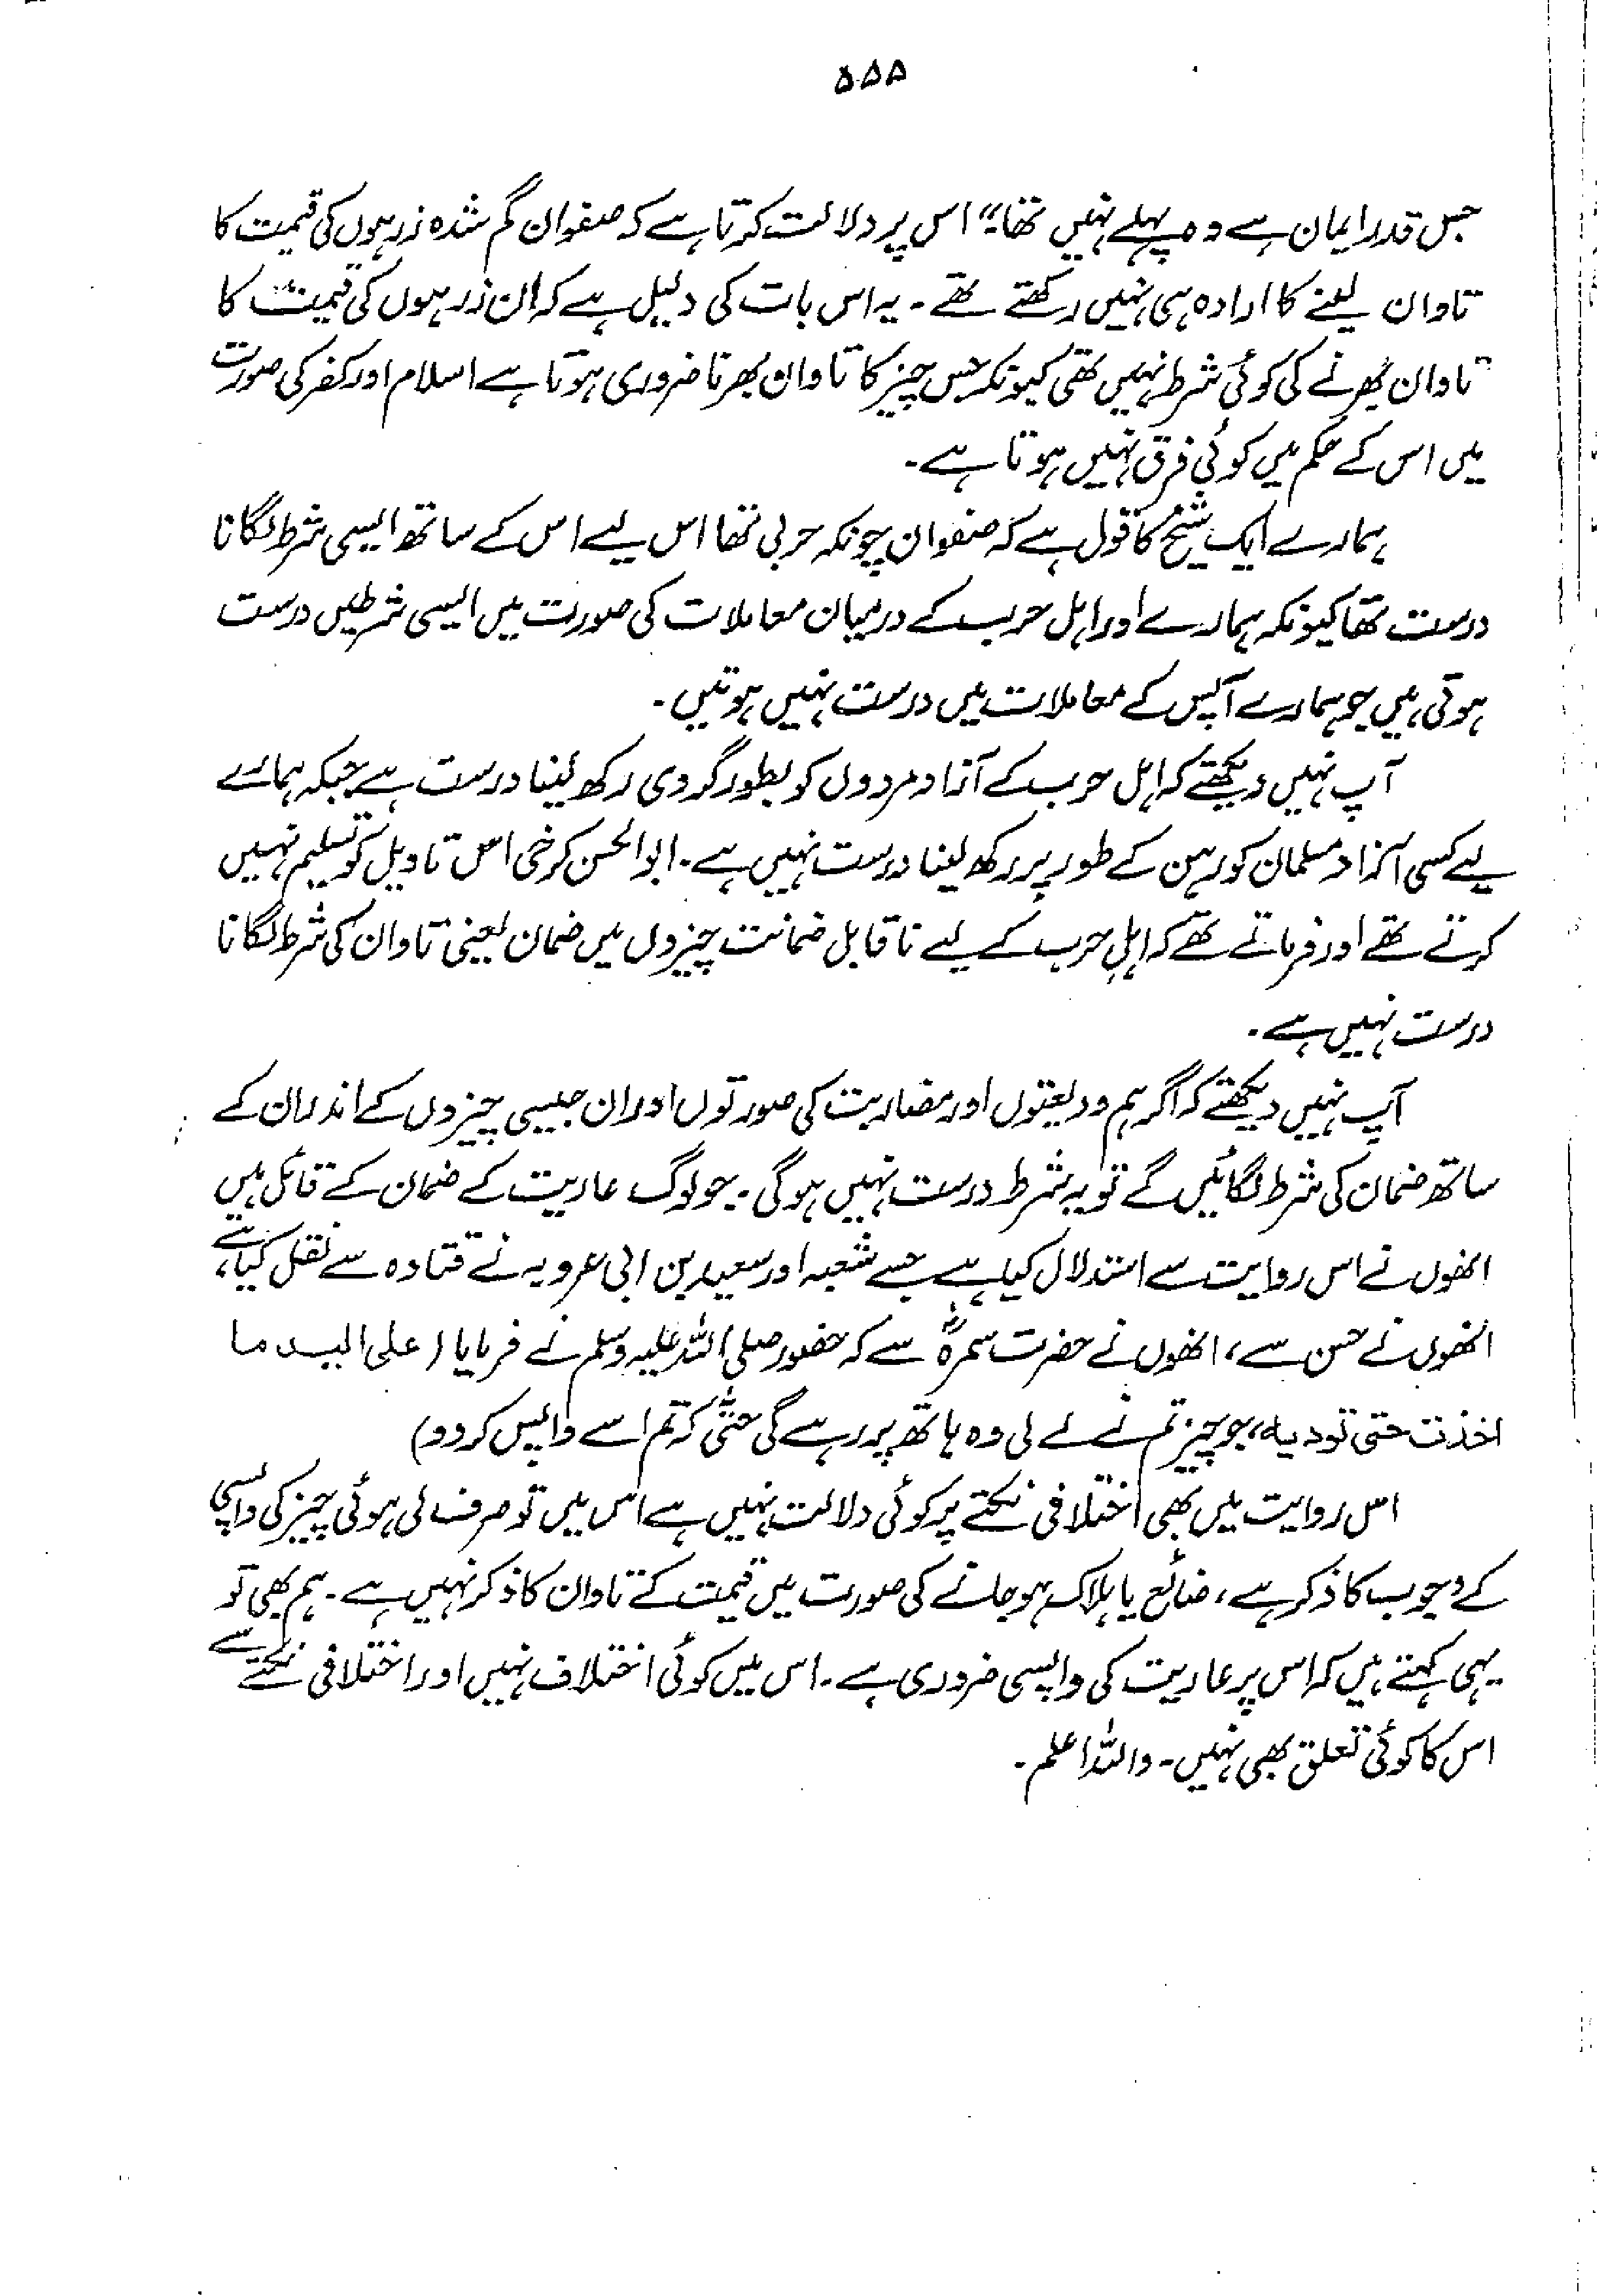 ۵۵۵
جس قدر ایمان ہے وہ پہلے نہیں تھا" اس پر دلالت کرتا ہے کہ صفوان گم شدہ زرہوں کی قیمت کا
تاوان لینے کا ارادہ ہی نہیں رکھتے تھے۔ یہ اس بات کی دلیل ہے کہ ان زرہوں کی قیمت کا
تاوان بھرنے کی کوئی شرط نہیں تھی کیونکہ جس چیز کا تاوان بھرنا ضروری ہوتا ہے اسلام اور کفر کی صورت
میں اس کے حکم میں کوئی فرق نہیں ہوتا ہے۔
ہمارے ایک شیخ کا قول ہے کہ صفوان چونکہ حربی تھا اس لیے اس کے ساتھ ایسی شرط لگانا
درست تھا کیونکہ ہمارے اور اہل حرب کے درمیان معاملات کی صورت میں ایسی شرطیں درست
ہوتی ہیں جو ہمارے آپس کے معاملات میں درست نہیں ہوتیں۔
آپ نہیں دیکھتے کہ اہل حرب کے آزاد مردوں کو بطور گروی رکھ لینا درست ہے جبکہ ہمارے
لیے کسی آزاد مسلمان کو رہن کے طور پر رکھ لینا درست نہیں ہے۔ ابوالحسن کرخی اس تاویل کو تسلیم نہیں
کرتے تھے اور فرماتے تھے کہ اہل حرب کے لیے ناقابل ضمانت چیزوں میں ضمان یعنی تاوان کی شرط لگانا
درست نہیں ہے۔
آپ نہیں دیکھتے کہ اگر ہم ودیعتوں اور مضاربت کی صورتوں اور ان جیسی چیزوں کے اندر ان کے
ساتھ ضمان کی شرط لگائیں گے تو یہ شرط درست نہیں ہوگی۔ جو لوگ عاریت کے ضمان کے قائل ہیں
انھوں نے اس روایت سے استدلال کیا ہے جسے شعبہ اور سعید بن ابی عروبہ نے قتادہ سے نقل کیا ہے،
انھوں نے حسن سے، انھوں نے حضرت سمرہؓ سے کہ حضور صلی اللہ علیہ وسلم نے فرمایا (علی الید ما
اخذت حتی تودیہ، جو چیز تم نے لے لی وہ ہاتھ پر رہے گی حتیٰ کہ تم اسے واپس کر دو)
اس روایت میں بھی اختلافی نکتے پر کوئی دلالت نہیں ہے اس میں تو صرف لی ہوئی چیز کی واپسی
کے وجوب کا ذکر ہے، ضائع یا ہلاک ہو جانے کی صورت میں قیمت کے تاوان کا ذکر نہیں ہے۔ ہم بھی تو
یہی کہتے ہیں کہ اس پر عاریت کی واپسی ضروری ہے۔ اس میں کوئی اختلاف نہیں اور اختلافی نکتے سے
اس کا کوئی تعلق بھی نہیں۔ واللہ اعلم۔